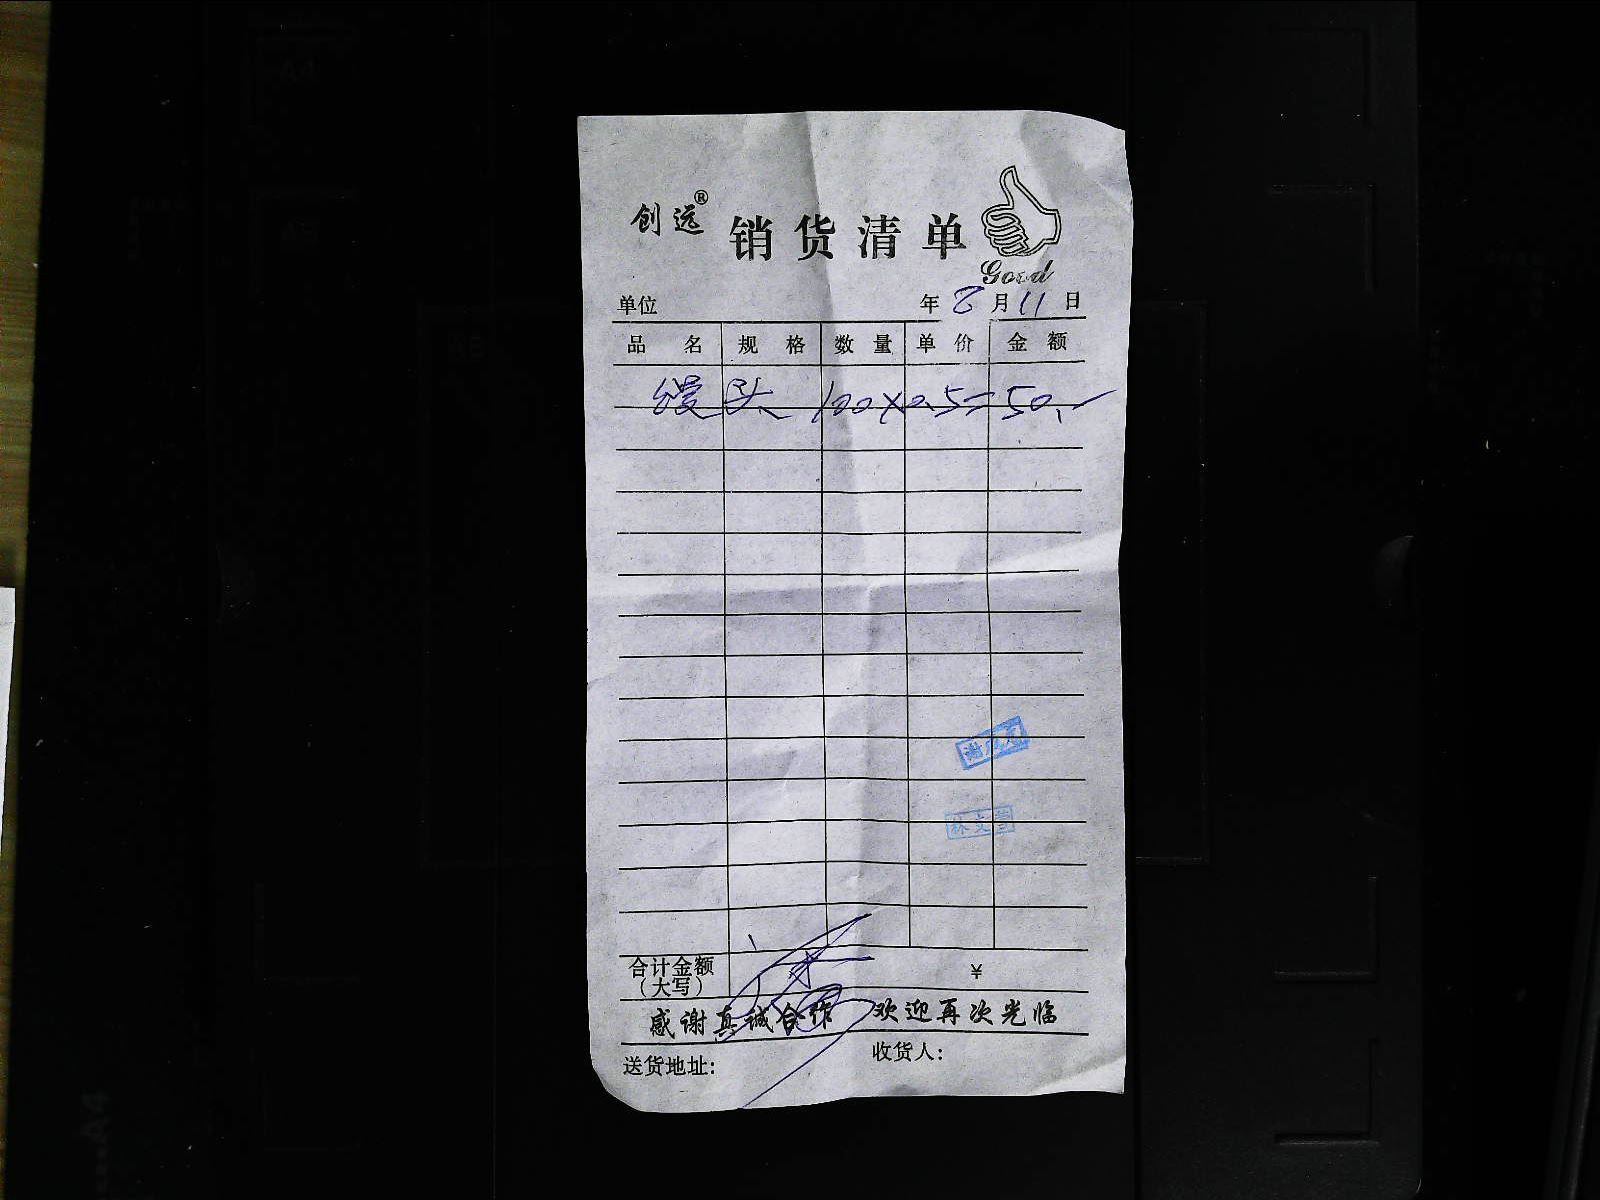 创远® 销货清单
Good
单位 年 8 月 11 日
品名 规格 数量 单价 金额
馒头 100×0.5=50.
林文
合计金额
(大写) ¥
感谢真诚合作 欢迎再次光临
送货地址: 收货人: